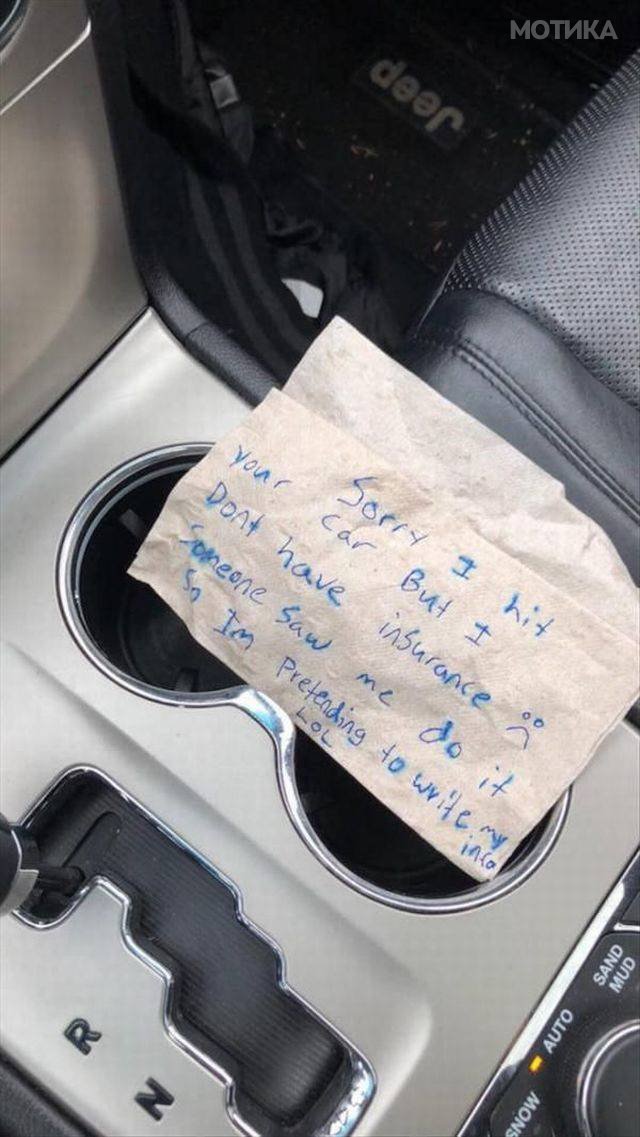 МОТИКА
Jeep
Sorry I hit
your car But I
Dont have insurance ☹
Someone Saw me do it
So Im Pretending to write my
LOL info
R
N
SAND
MUD
AUTO
SNOW